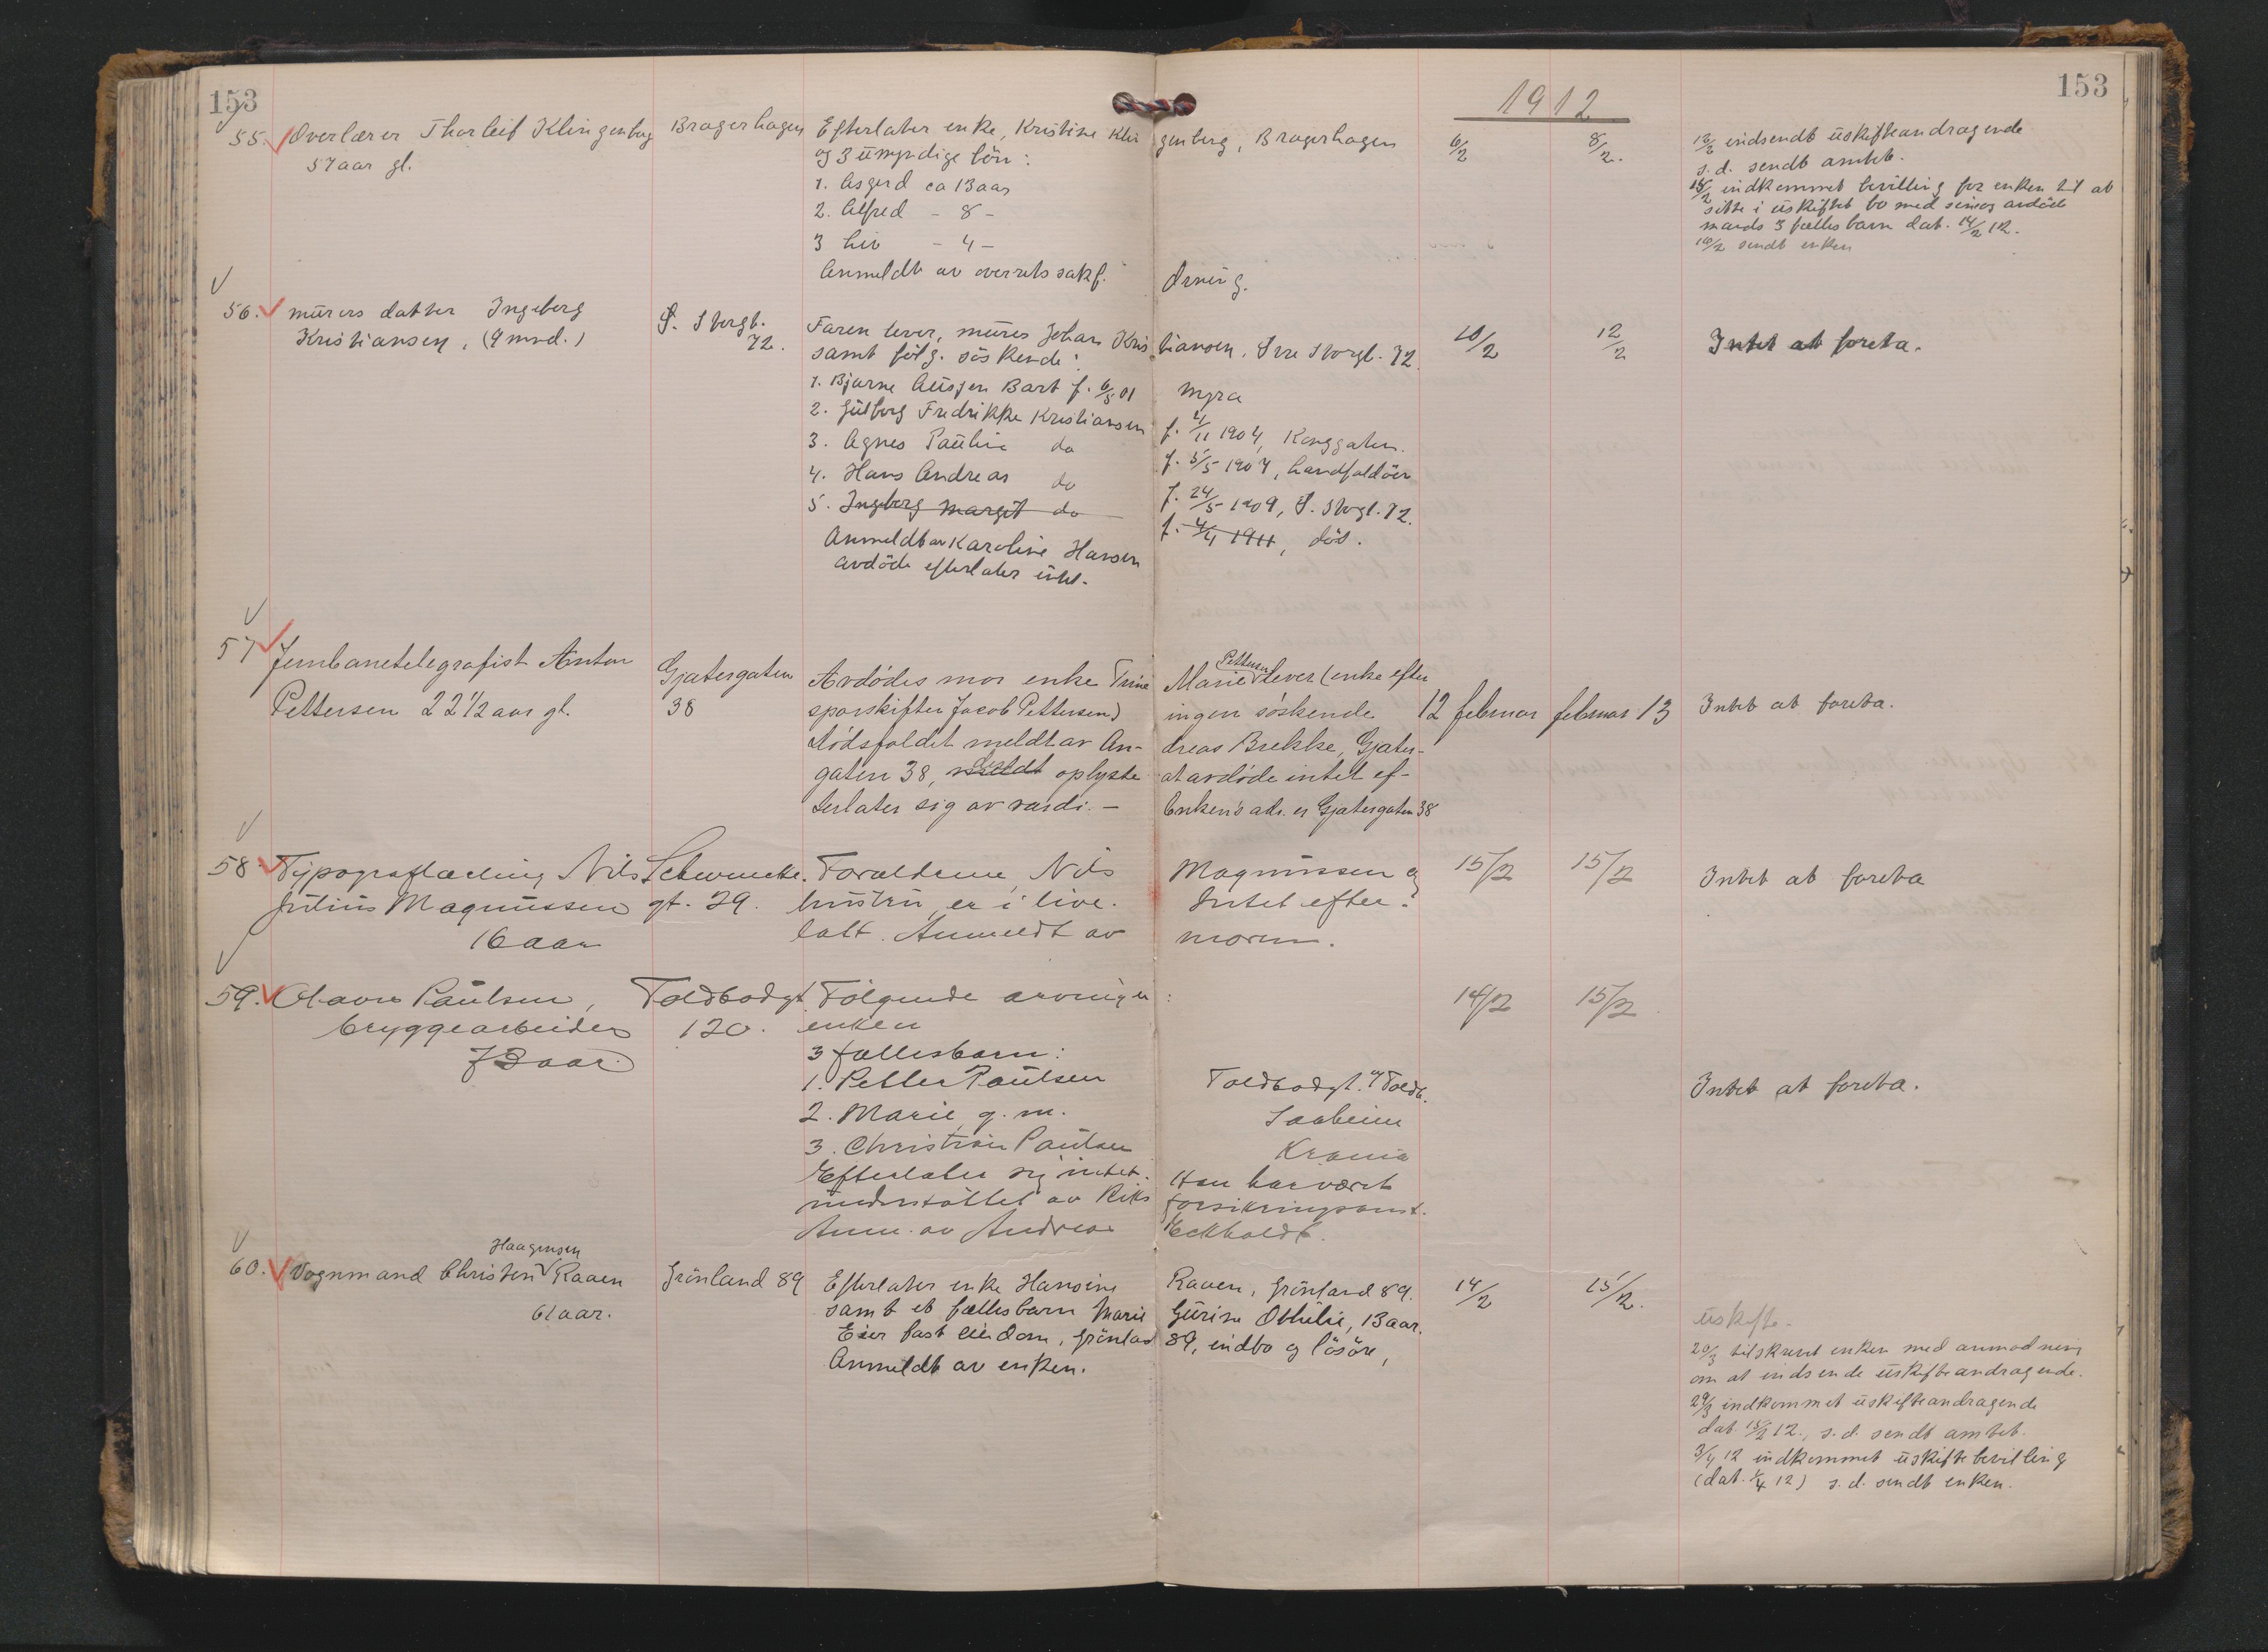 153
153
1912
55. Overlærer Thorleif Klingenberg Bragerhagen Efterlater enke, Kristine Klingenberg, Bragerhagen 6/2 8/2.
57 aar gl. og 3 umyndige børn:
1. Asgerd ca 13 aar
2. Alfred - 8 -
3 Liv - 4 -
Anmeldt av overretssakf. Ørning.
12/2 indsendt uskifteandragende
s. d. sendt amtet.
15/2 indkommet bevilling for enken til at
sitte i uskiftet bo med sin og avdøde
mands 3 fælles barn dat. 14/2 12.
sendt enken
56. murers datter Ingeborg S. Storgt. Faren lever, murer Johan Kristiansen, Øvre Storgt. 72 10/2 12/2 Intet at foreta.
Kristiansen, (9 mnd.) 72. samt følg. søskende:
1. Bjarne Bart f. 6/5 01 Myra
2. Gulborg Fredrikke Kristiansen f. 4/11 1904, Konggaten.
3. Agnes Pauline do f. 5/5 1907, Landfaldøen
4. Hans Andreas do f. 24/5 1909, S. Storgt. 72.
5. Ingeborg Margit do f. 4/4 1911, død.
Anmeldt av Karoline Hansen
avdøde efterlater intet.
57 Jernbanetelegrafist Anton Gjætergaten Avdødes mor enke Trine Marie Pettersen lever (enke efter
Pettersen 22 1/2 aar gl. 38 sporskifter Jacob Pettersen) ingen søskende 12 februar februar 13 Intet at foreta.
Dødsfaldet meldt av Andreas Brekke, Gjætergaten 38,
meldt oplyste at avdøde intet efterlater sig av værdi. —
Enken's adr. er Gjætergaten 38
58. Typograflærling Nils Schwencke. Forældrene, Nils Magnussen og 15/2 15/2 Intet at foreta
Julius Magnussen gt. 29. hustru, er i live. Intet efter-
16 aar latt. Anmeldt av moren.
59. Olaves Paulsen, Toldbodgt. Følgende arvinger: 14/2 15/2
bryggearbeider 120. enken
73 aar. 3 fællesbarn:
1. Petter Paulsen Toldbodgt.
2. Marie, g. m. Saaheim Intet at foreta.
3. Christian Paulsen Krania
Efterlater sig intet. Han har været
understøttet av Riksforsikringsanst.
Anm. av Andreas Eckholdt.
60. Vognmand Christen Haagensen Raaen Grønland 89 Efterlater enke Hansine Raaen, Grønland 89. 14/2 15/2.
61 aar. samt et fællesbarn Marie Gurine Othilie, 13 aar.
Eier fast eiendom, Grønland 89, indbo og løsøre,
Anmeldt av enken.
uskifte.
20/3 tilskrevet enken med anmodning
om at indsende uskifteandragende.
29/3 indkommet uskifteandragende
dat. 15/2 12., s. d. sendt amtet.
3/4 12 indkommet uskiftebevilling
(dat. 1/4 12) s. d. sendt enken.